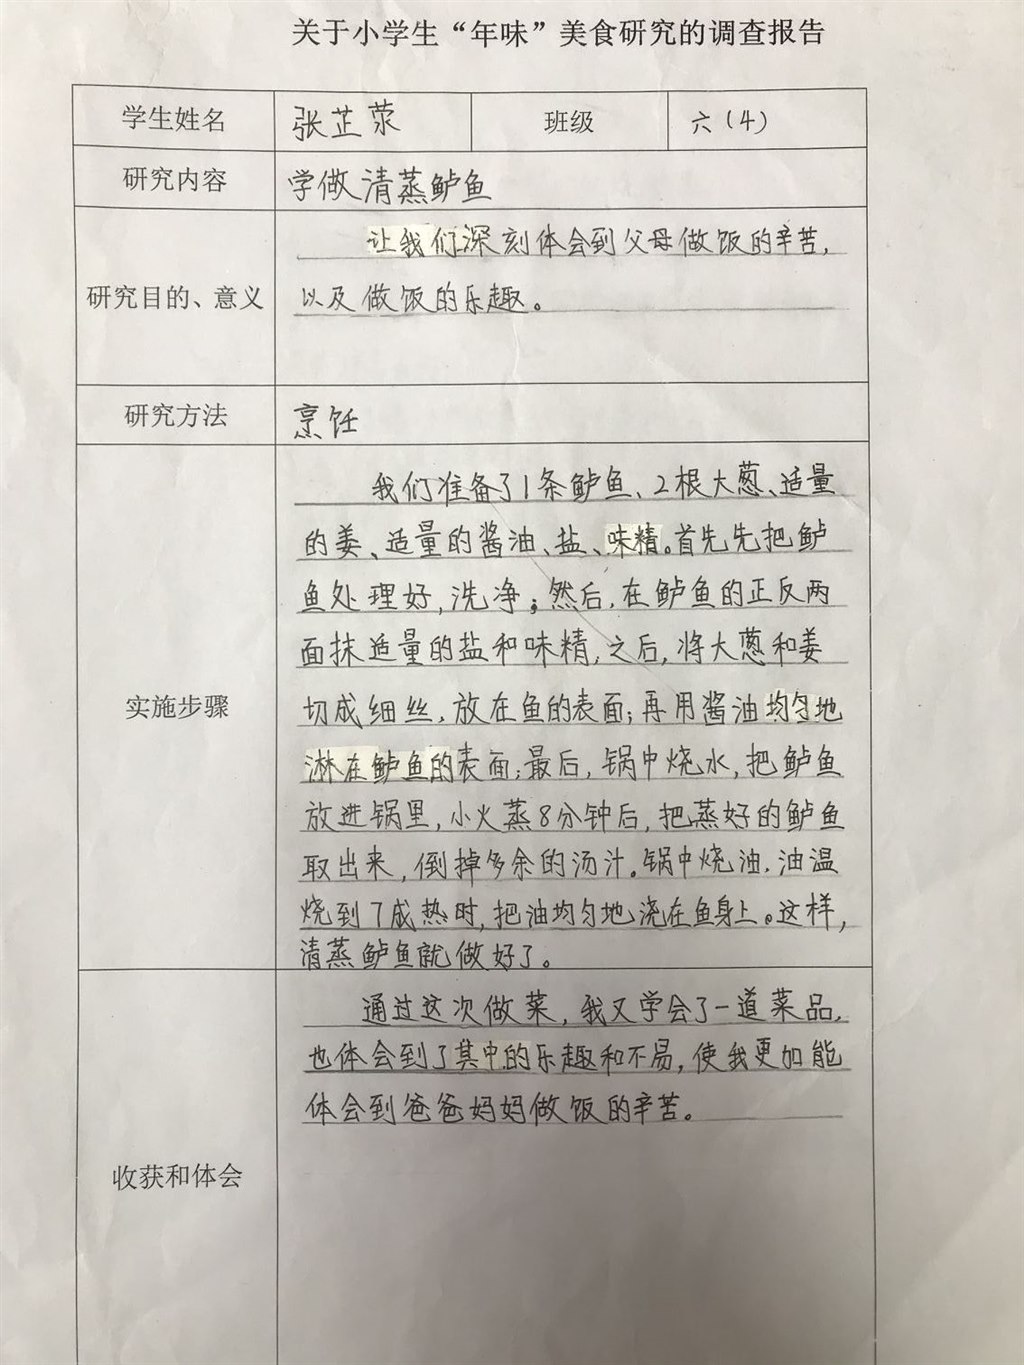 关于小学生“年味”美食研究的调查报告
学生姓名 张芷荥 班级 六（4）
研究内容 学做清蒸鲈鱼
让我们深刻体会到父母做饭的辛苦，
研究目的、意义 以及做饭的乐趣。
研究方法 烹饪
我们准备了1条鲈鱼、2根大葱、适量
的姜、适量的酱油、盐、味精。首先先把鲈
鱼处理好，洗净；然后，在鲈鱼的正反两
面抹适量的盐和味精，之后，将大葱和姜
实施步骤 切成细丝，放在鱼的表面；再用酱油均匀地
淋在鲈鱼的表面；最后，锅中烧水，把鲈鱼
放进锅里，小火蒸8分钟后，把蒸好的鲈鱼
取出来，倒掉多余的汤汁。锅中烧油，油温
烧到7成热时，把油均匀地浇在鱼身上。这样，
清蒸鲈鱼就做好了。
通过这次做菜，我又学会了一道菜品，
也体会到了其中的乐趣和不易，使我更加能
体会到爸爸妈妈做饭的辛苦。
收获和体会